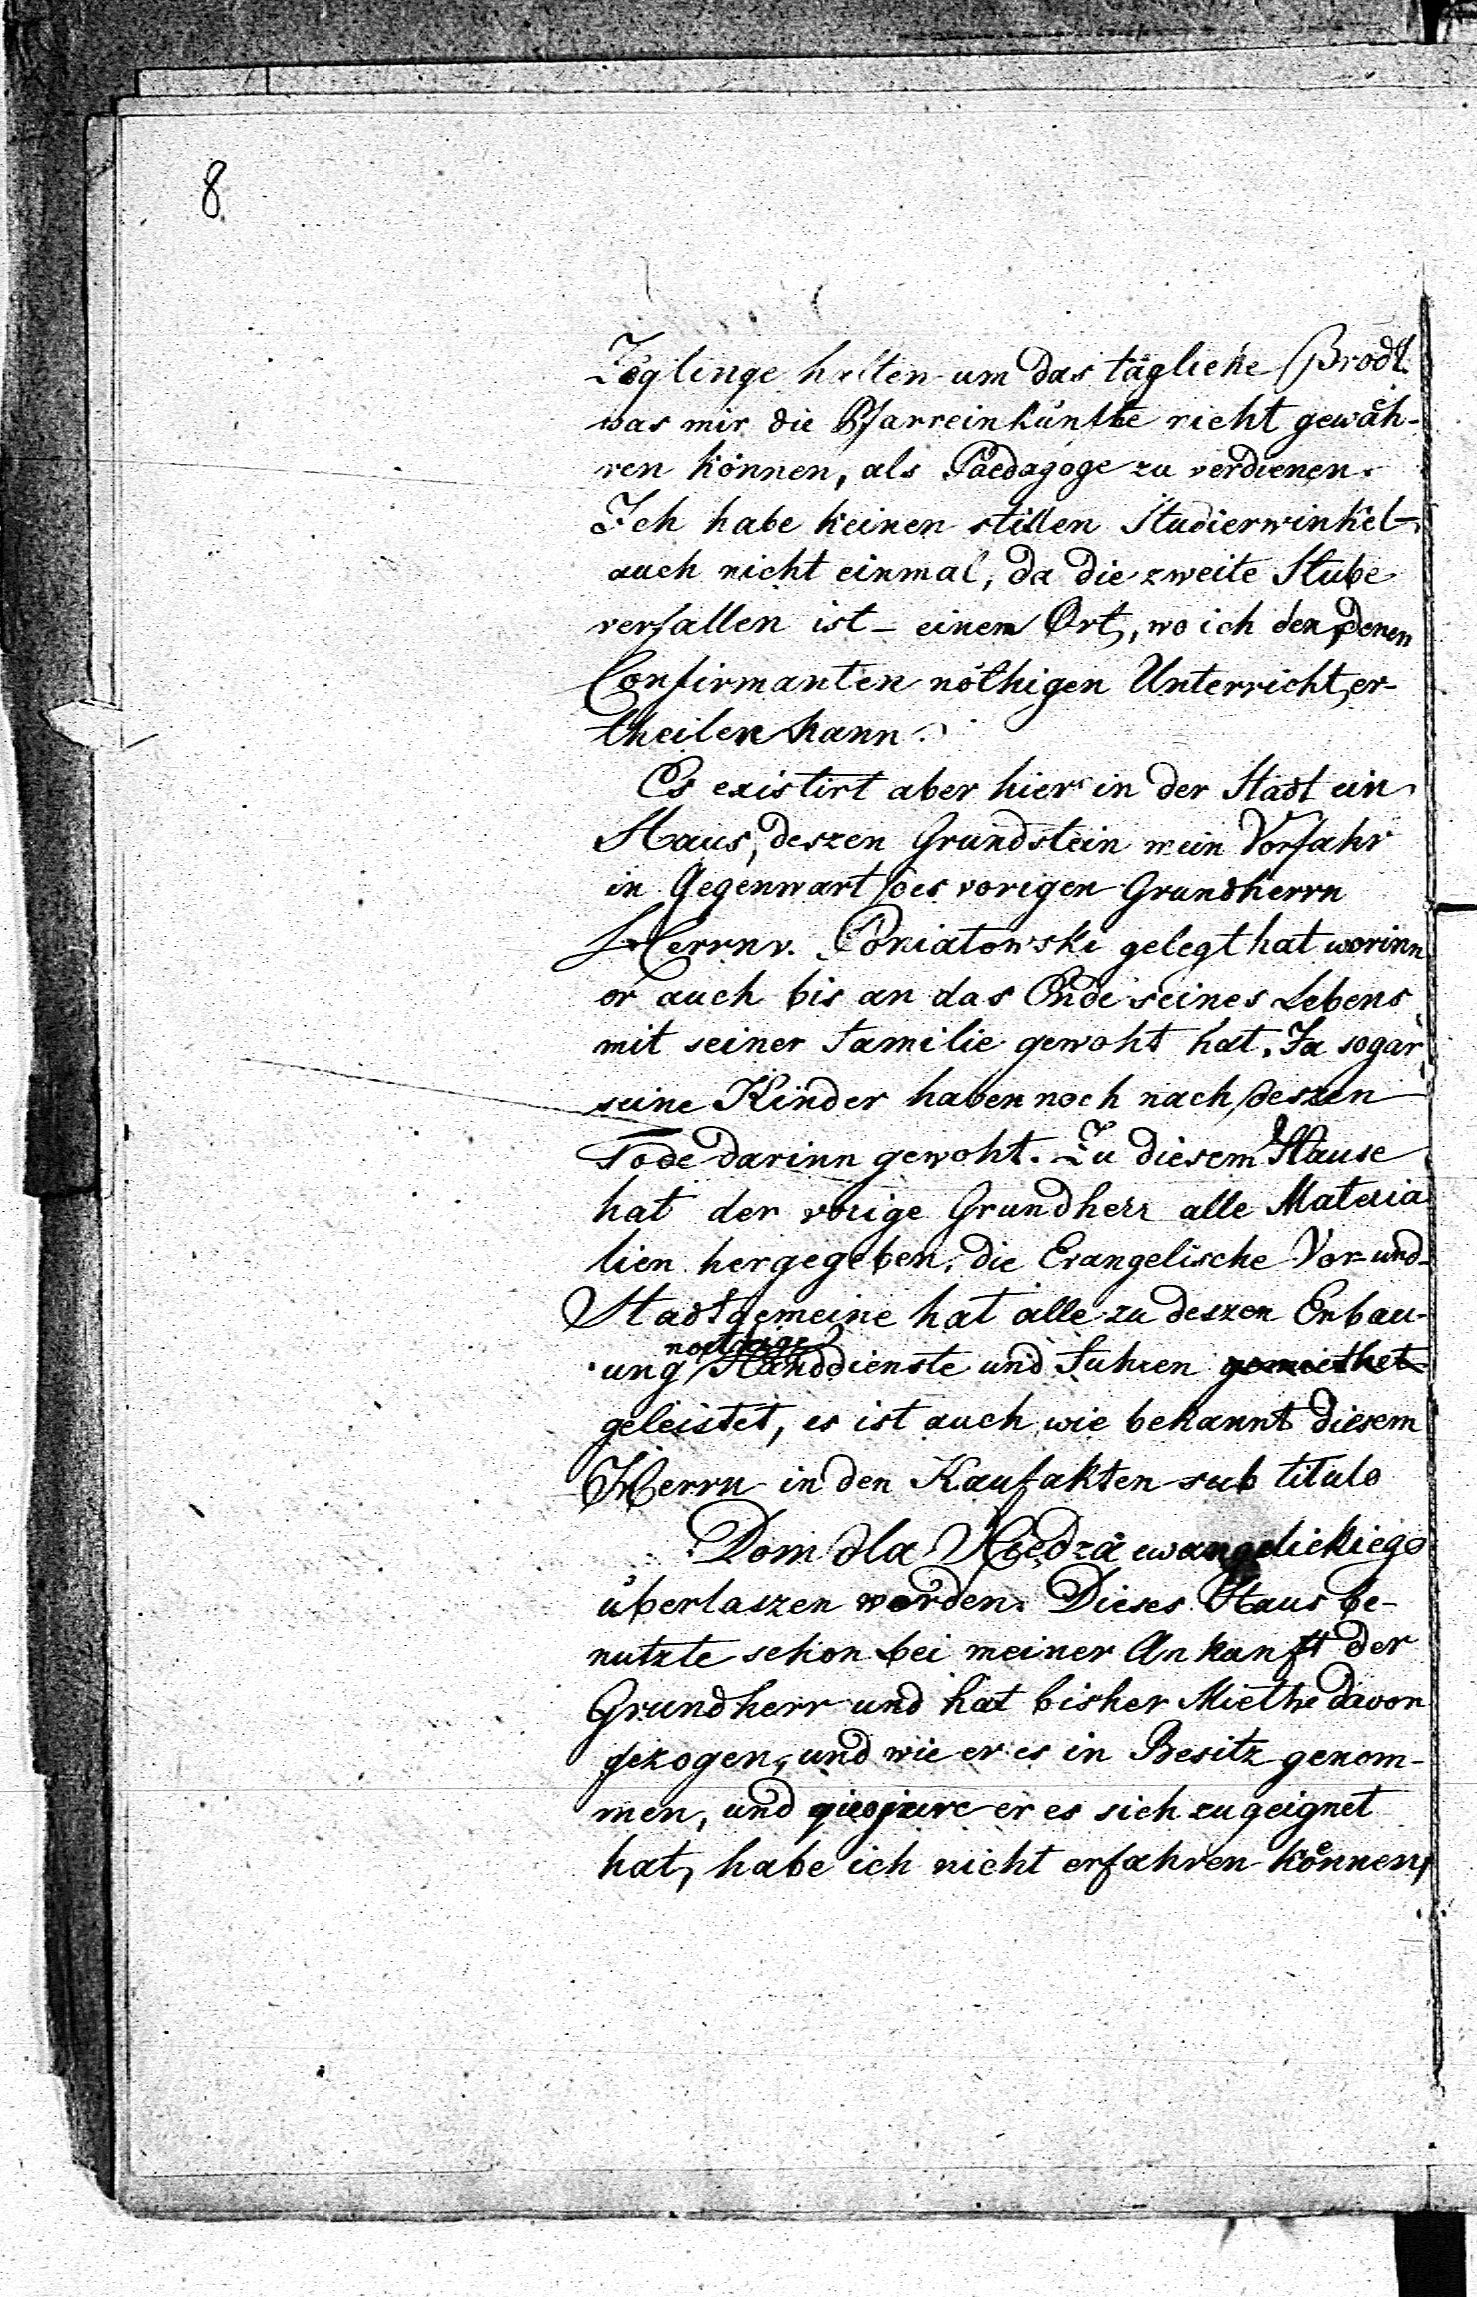 8
Zöglinge halten um das tägliche Brodt.
was mir die Pfarreinkünfte nicht gewäh-
ren können, als Paedagoge zu verdienen.
Ich habe keinen stillen Studierwinkel-
auch nicht einmal, da die zweite Stube
verfallen ist - einen Ort, wo ich den, denen
Confirmanten nöthigen Unterricht er-
theilen kann.
Es existirt aber hier in der Stadt ein
Haus, deszen Grundstein mein Vorfahr
in Gegenwart des vorigen Grundherrn
Herrn v. Poniatowski gelegt hat worinn
er auch bis an das Ende seines Lebens
mit seiner Familie gewoht hat. Ja sogar
seine Kinder haben noch nach deszen
Tode darinn gewoht. Zu diesem Hause
hat der vorige Grundherr alle Materia
lien hergegeben, die Evangelische Vor- und
Stadtgemeine hat alle zu deszen Erbau-
noethige
ung Handdienste und Fuhren gemiethet
geleistet, es ist auch wie bekannt diesem
Herrn in den Kaufakten sub titulo
Dom dla Kiędza ewangelickiego
überlaszen worden. Dieses Haus be-
nutzte schon bei meiner Ankunft der
Grundherr und hat bisher Miethe davon
gezogen, und wie er es in Besitz genom-
men, und quo jure er es sich zugeignet
hat, habe ich nicht erfahren können,